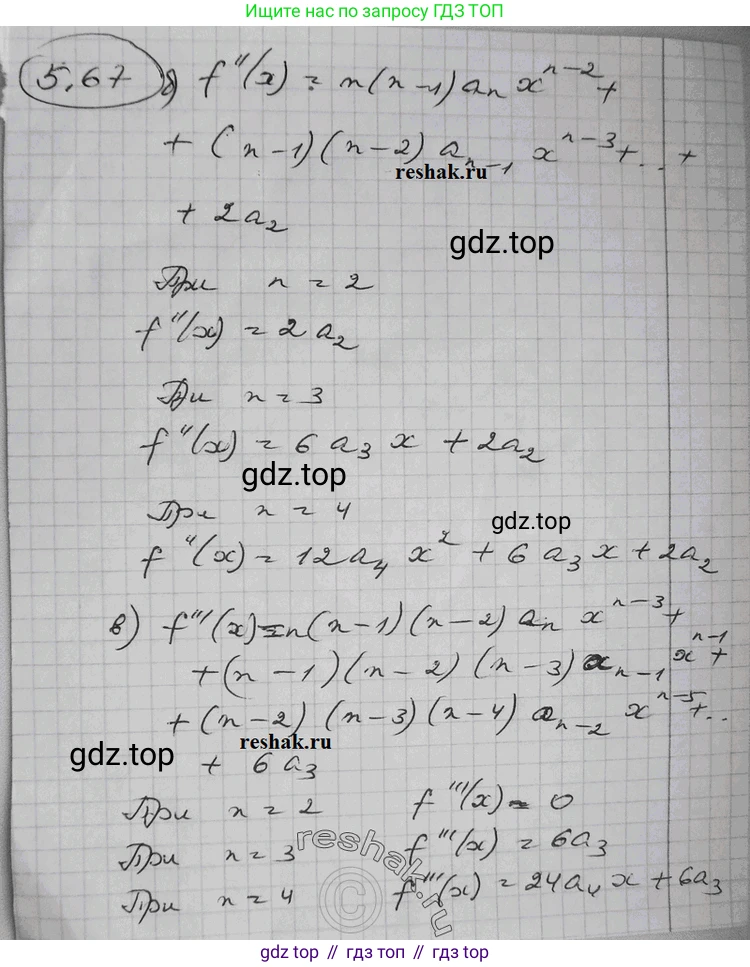 Ищите нас по запросу ГДЗ ТОП
5.67 б) f''(x) = n(n-1) aₙ xⁿ⁻² +
+ (n-1)(n-2) aₙ₋₁ xⁿ⁻³ + ... +
reshak.ru
+ 2a₂
gdz.top
При n = 2
f''(x) = 2a₂
При n = 3
f''(x) = 6a₃x + 2a₂
gdz.top
При n = 4
gdz.top
f''(x) = 12a₄x² + 6a₃x + 2a₂
в) f'''(x) = n(n-1)(n-2) aₙ xⁿ⁻³ +
+ (n-1)(n-2)(n-3) aₙ₋₁ xⁿ⁻¹ +
+ (n-2)(n-3)(n-4) aₙ₋₂ xⁿ⁻⁵ + ..
reshak.ru
gdz.top
+ 6a₃
При n = 2 f'''(x) = 0
При n = 3 f'''(x) = 6a₃
При n = 4 f'''(x) = 24a₄x + 6a₃
reshak.ru
©
gdz top // гдз топ // gdz.top